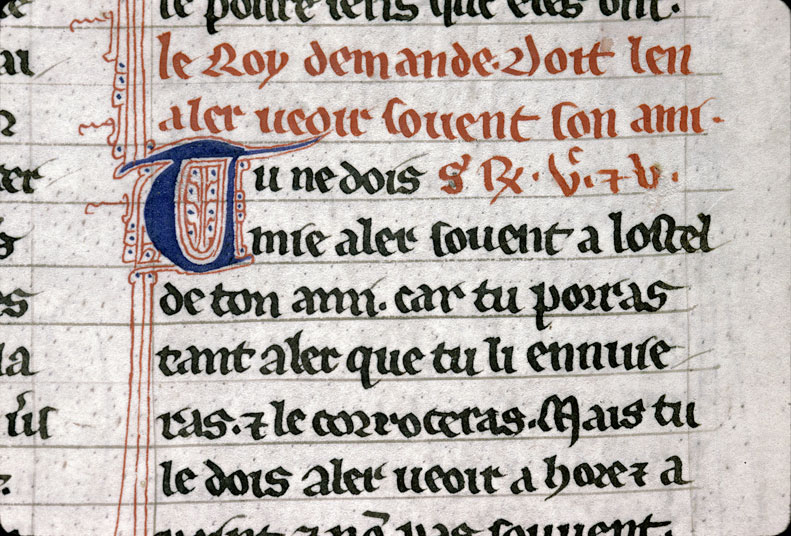 le poure iens que eles ont.
le Roy demande. Doit len
aler ueoir souent son ami.
Tu ne dois
mie aler souent a lostel
de ton ami. car tu porras
tant aler que tu li ennuie
ras. ⁊ le corroceras. Mais tu
le dois aler ueoir a hore ⁊ a
point ⁊ nō pas souuent.